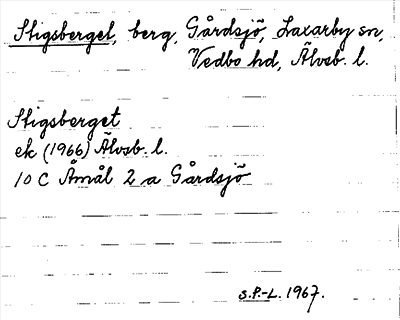 Stigsberget, berg, Gårdsjö, Laxarby sn,
Vedbo hd, Älvsb. l.
Stigsberget
ek (1966) Älvsb. l.
10 C Åmål 2 a Gårdsjö
S.P.-L. 1967.